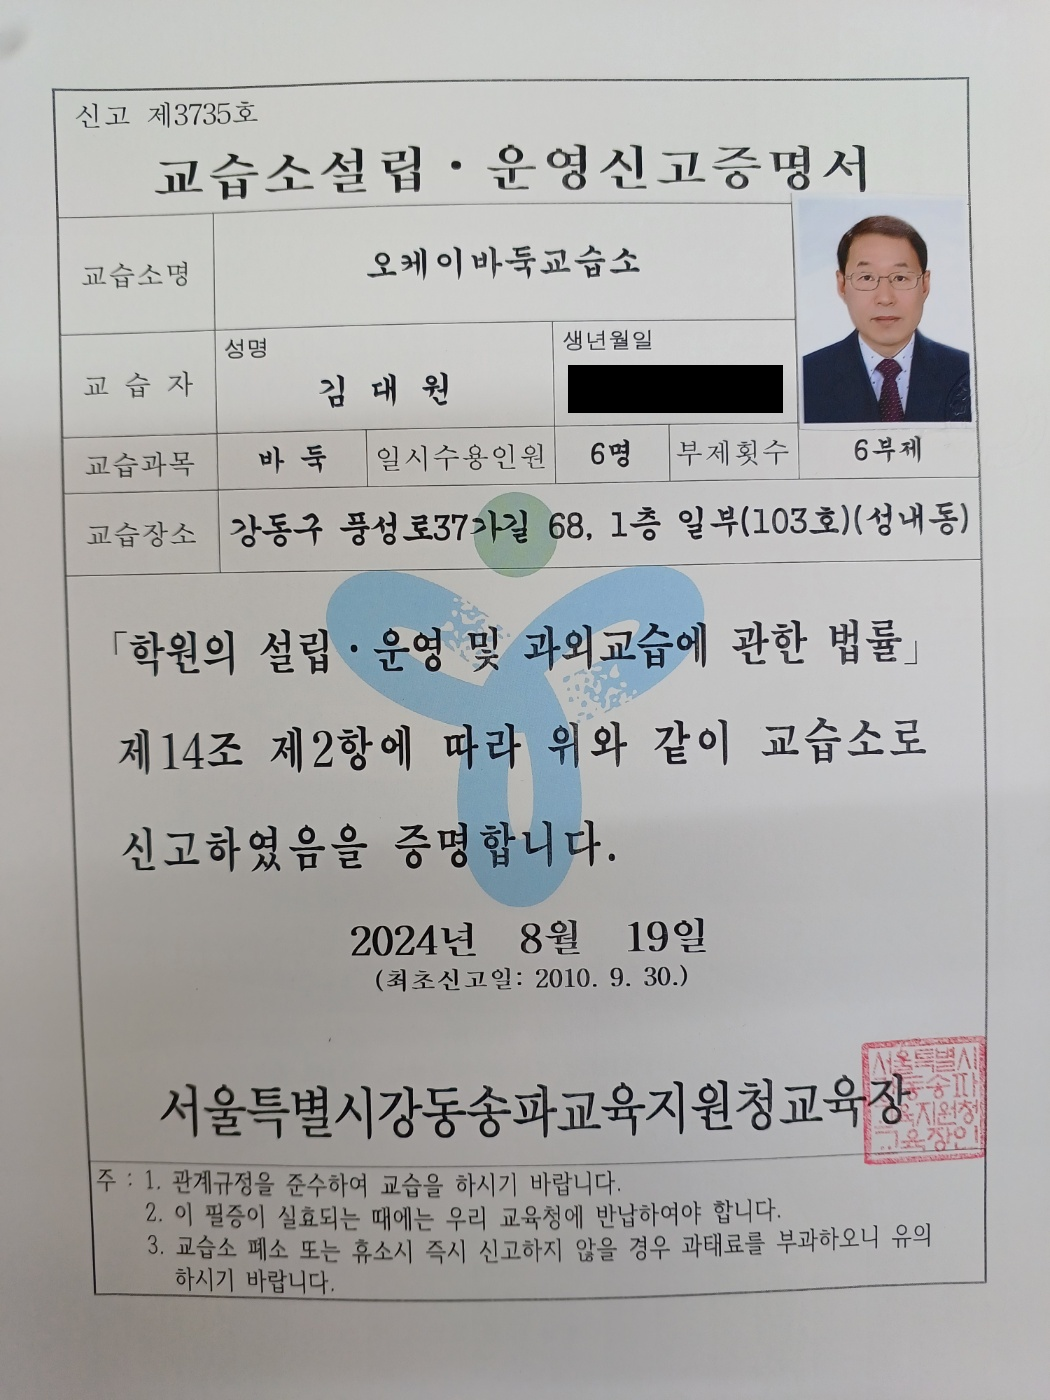 신고 제3735호
교습소설립·운영신고증명서
교습소명
오케이바둑교습소
교 습 자
성명
김 대 원
생년월일
교습과목
바 둑
일시수용인원
6명
부제횟수
6부제
교습장소
강동구 풍성로37가길 68, 1층 일부(103호)(성내동)
「학원의 설립·운영 및 과외교습에 관한 법률」
제14조 제2항에 따라 위와 같이 교습소로
신고하였음을 증명합니다.
2024년 8월 19일
(최초신고일: 2010. 9. 30.)
서울특별시강동송파교육지원청교육장
서울특별시
강동송파
교육지원청
교육장인
주 : 1. 관계규정을 준수하여 교습을 하시기 바랍니다.
2. 이 필증이 실효되는 때에는 우리 교육청에 반납하여야 합니다.
3. 교습소 폐소 또는 휴소시 즉시 신고하지 않을 경우 과태료를 부과하오니 유의
하시기 바랍니다.